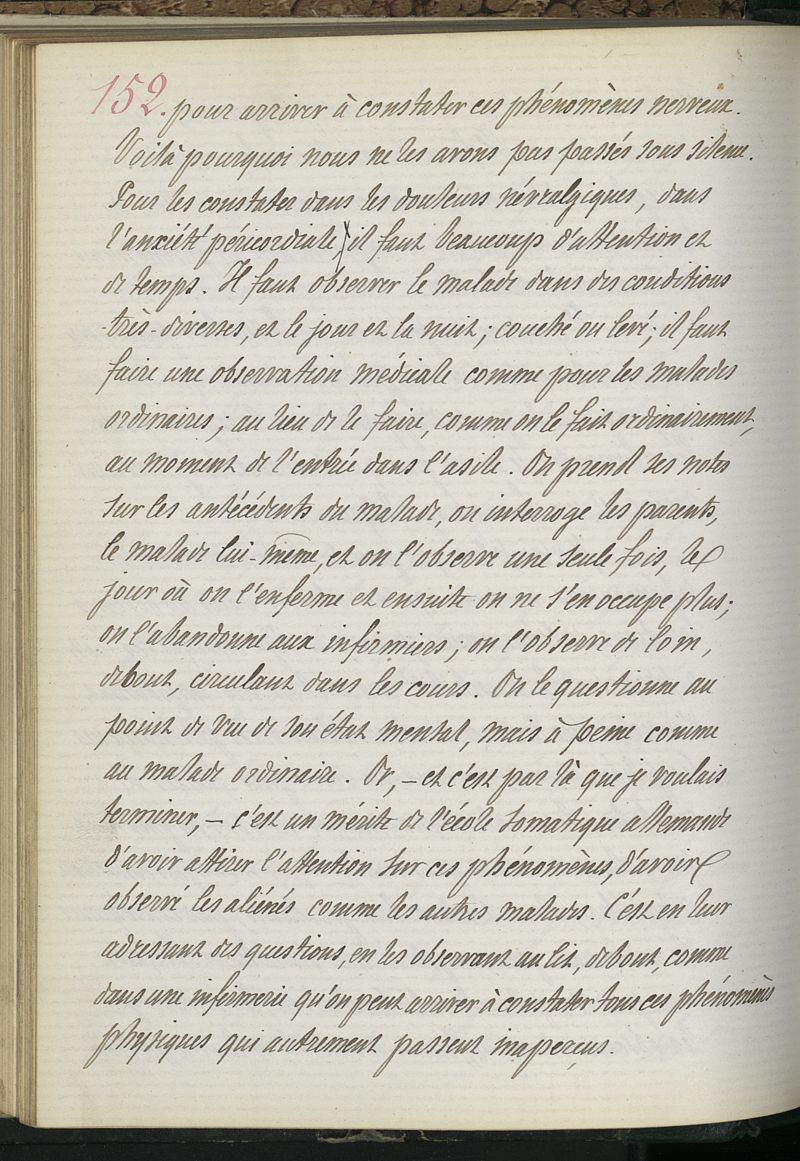 152. pour arriver à constater ces phénomènes nerveux.
Voilà pourquoi nous ne les avons pas passés sous silence.
Pour les constater dans les douleurs névralgiques, dans
l'anxiété péricordiale, il faut beaucoup d'attention et
de temps. Il faut observer le malade dans des conditions
très-diverses, et le jour et la nuit; couché ou levé; il faut
faire une observation médicale comme pour les malades
ordinaires; au lieu de le faire, comme on le fait ordinairement,
au moment de l'entrée dans l'asile. On prend ses notes
sur les antécédents du malade, on interroge les parents,
le malade lui-même, et on l'observe une seule fois, le
jour où on l'enferme et ensuite on ne s'en occupe plus;
on l'abandonne aux infirmiers; on l'observe de loin,
debout, circulant dans les cours. On le questionne au
point de vue de son état mental, mais à peine comme
au malade ordinaire. Or, – et c'est par là que je voulais
terminer, – c'est un mérite de l'école somatique allemande
d'avoir attirer l'attention sur ces phénomènes, d'avoir
observé les aliénés comme les autres malades. C'est en leur
adressant des questions, en les observant au lit, debout, comme
dans une infirmerie qu'on peut arriver à constater tous ces phénomènes
physiques qui autrement passent inaperçus.